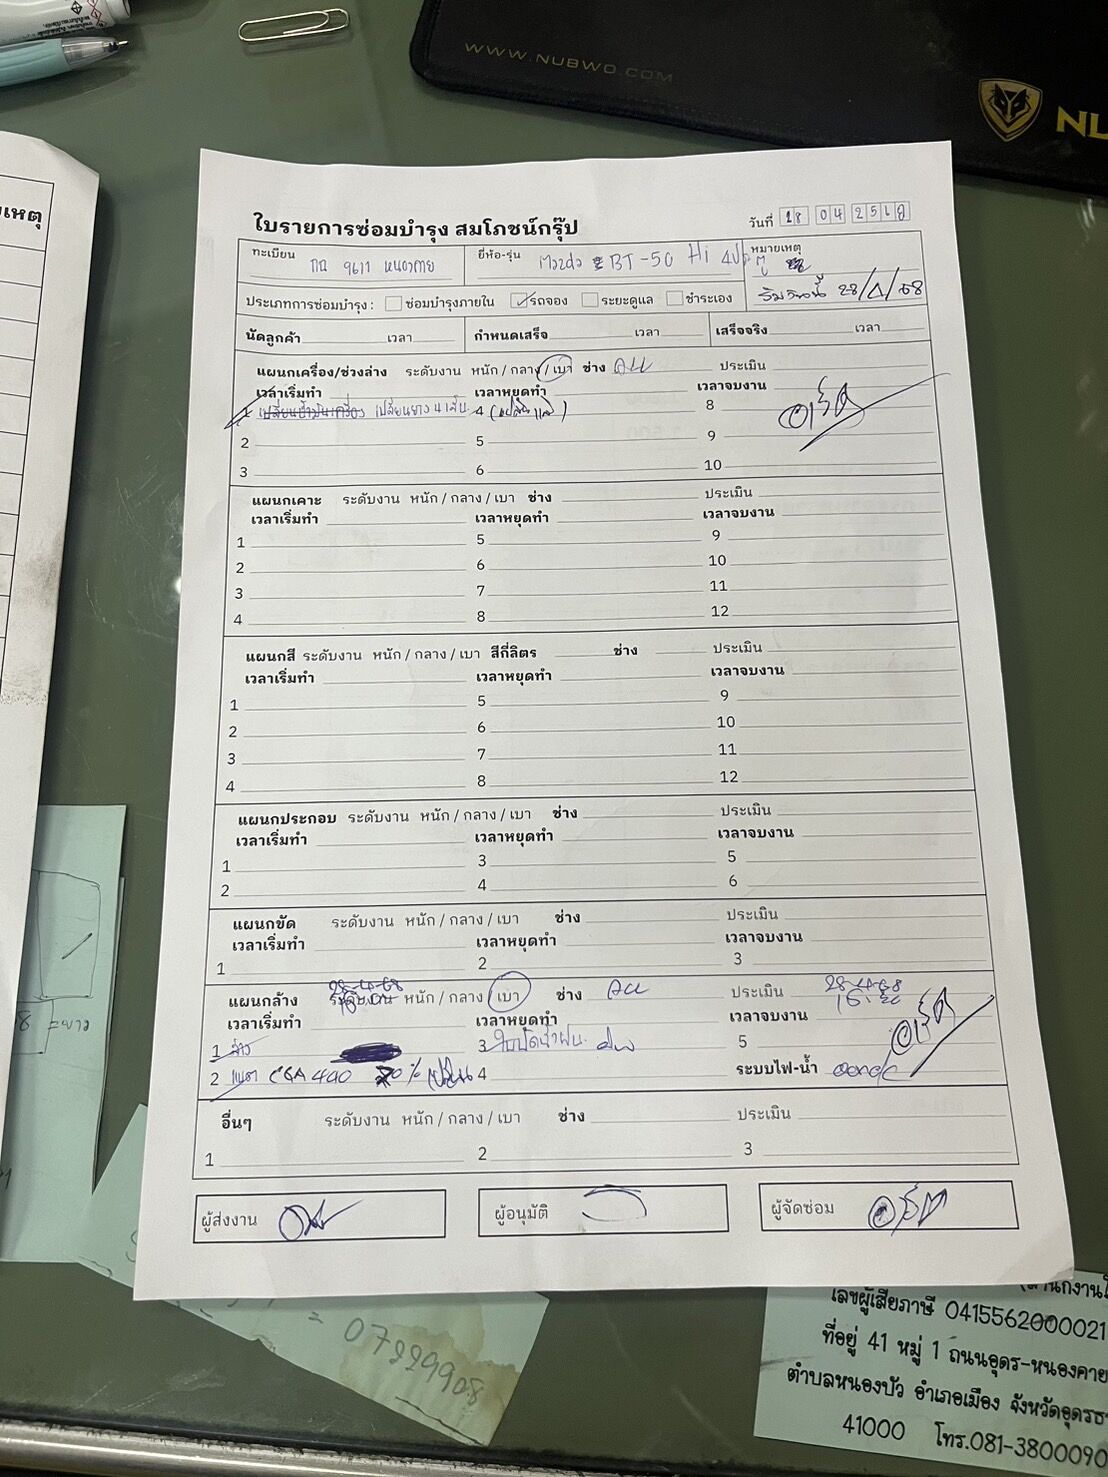 WWW.NUBWO.COM
NU
เหตุ
ใบรายการซ่อมบำรุง สมโภชน์กรุ๊ป
วันที่ 28 04 2568
ทะเบียน กฉ 9677 หนองคาย ยี่ห้อ-รุ่น Mazda BT-50 Hi 4ประตู หมายเหตุ
ประเภทการซ่อมบำรุง : ซ่อมบำรุงภายใน รถจอง ระยะดูแล ชำระเอง รับรถวันนี้ 28/4/68
นัดลูกค้า เวลา กำหนดเสร็จ เวลา เสร็จจริง เวลา
แผนกเครื่อง/ช่วงล่าง ระดับงาน หนัก / กลาง / เบา ช่าง ประเมิน
เวลาเริ่มทำ เวลาหยุดทำ เวลาจบงาน
1 เปลี่ยนน้ำมันเครื่อง เปลี่ยนยาง 4 เส้น 4 8
2 5 9
3 6 10
แผนกเคาะ ระดับงาน หนัก / กลาง / เบา ช่าง ประเมิน
เวลาเริ่มทำ เวลาหยุดทำ เวลาจบงาน
1 5 9
2 6 10
3 7 11
4 8 12
แผนกสี ระดับงาน หนัก / กลาง / เบา สีกี่ลิตร ช่าง ประเมิน
เวลาเริ่มทำ เวลาหยุดทำ เวลาจบงาน
1 5 9
2 6 10
3 7 11
4 8 12
แผนกประกอบ ระดับงาน หนัก / กลาง / เบา ช่าง ประเมิน
เวลาเริ่มทำ เวลาหยุดทำ เวลาจบงาน
1 3 5
2 4 6
แผนกขัด ระดับงาน หนัก / กลาง / เบา ช่าง ประเมิน
เวลาเริ่มทำ เวลาหยุดทำ เวลาจบงาน
1 2 3
28-4-68 28-4-68
แผนกล้าง ระดับงาน หนัก / กลาง / เบา ช่าง ประเมิน
เวลาเริ่มทำ เวลาหยุดทำ เวลาจบงาน
1 ล้าง 3 ใบปัดน้ำฝน 5
2 แบต CCA 490 4 ระบบไฟ-น้ำ
อื่นๆ ระดับงาน หนัก / กลาง / เบา ช่าง ประเมิน
1 2 3
ผู้ส่งงาน ผู้อนุมัติ ผู้จัดซ่อม
07299908
เลขผู้เสียภาษี 0415562000021
ที่อยู่ 41 หมู่ 1 ถนนอุดร-หนองคาย
ตำบลหนองบัว อำเภอเมือง จังหวัดอุดรธ
41000 โทร.081-3800090